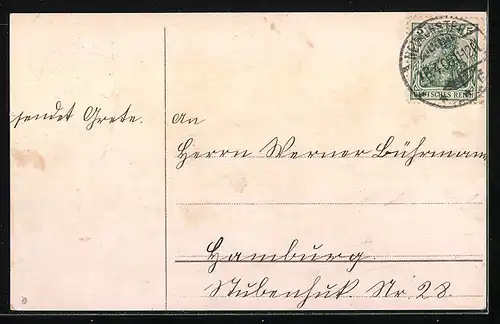 sendet Grete.
An
Herrn Werner Bührmann
Hamburg.
Stubenhuk. Nr 28.
DEUTSCHES REICH